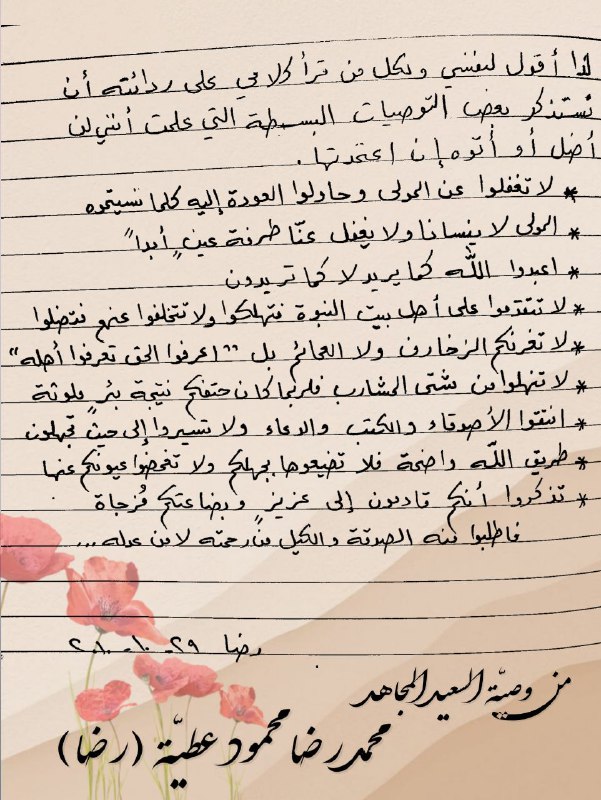 لذا أقول لنفسي ولكل من قرأ كلامي على ردائته أن
نستذكر بعض التوصيات البسيطة التي علمت أنني لن
أضل أو أتوه إن اعتمدتها.
* لا تغفلوا عن المولى وحاولوا العودة إليه كلما نسيتموه
* المولى لا ينسانا ولا يغفل عنّا طرفة عينٍ أبداً
* اعبدوا اللّه كما يريد لا كما تريدون
* لا تتقدموا على أهل بيت النبوة فتهلكوا ولا تتخلفوا عنهم فتضلوا
* لا تغرنكم الزخارف ولا العمائم بل "اعرفوا الحق تعرفوا أهله"
* لا تنهلوا من شتى المشارب فلربما كان حتفكم نتيجة بئرٍ ملوثة
* انتقوا الأصدقاء والكتب والدعاء ولا تسيروا إلى حيث تجهلون
* طريق اللّه واضحة فلا تضيعوها بجهلكم ولا تغمضوا عيونكم عنها
* تذكروا أنكم قادمون إلى عزيزٍ وبضاعتكم مُزجاة
فاطلبوا منه الصدقة والكيل من رحمته لا من عدله...
رضا ٢٩-١٠-٢٠١٠
من وصيّة السعيد المجاهد
محمد رضا محمود عطيّة (رضا)